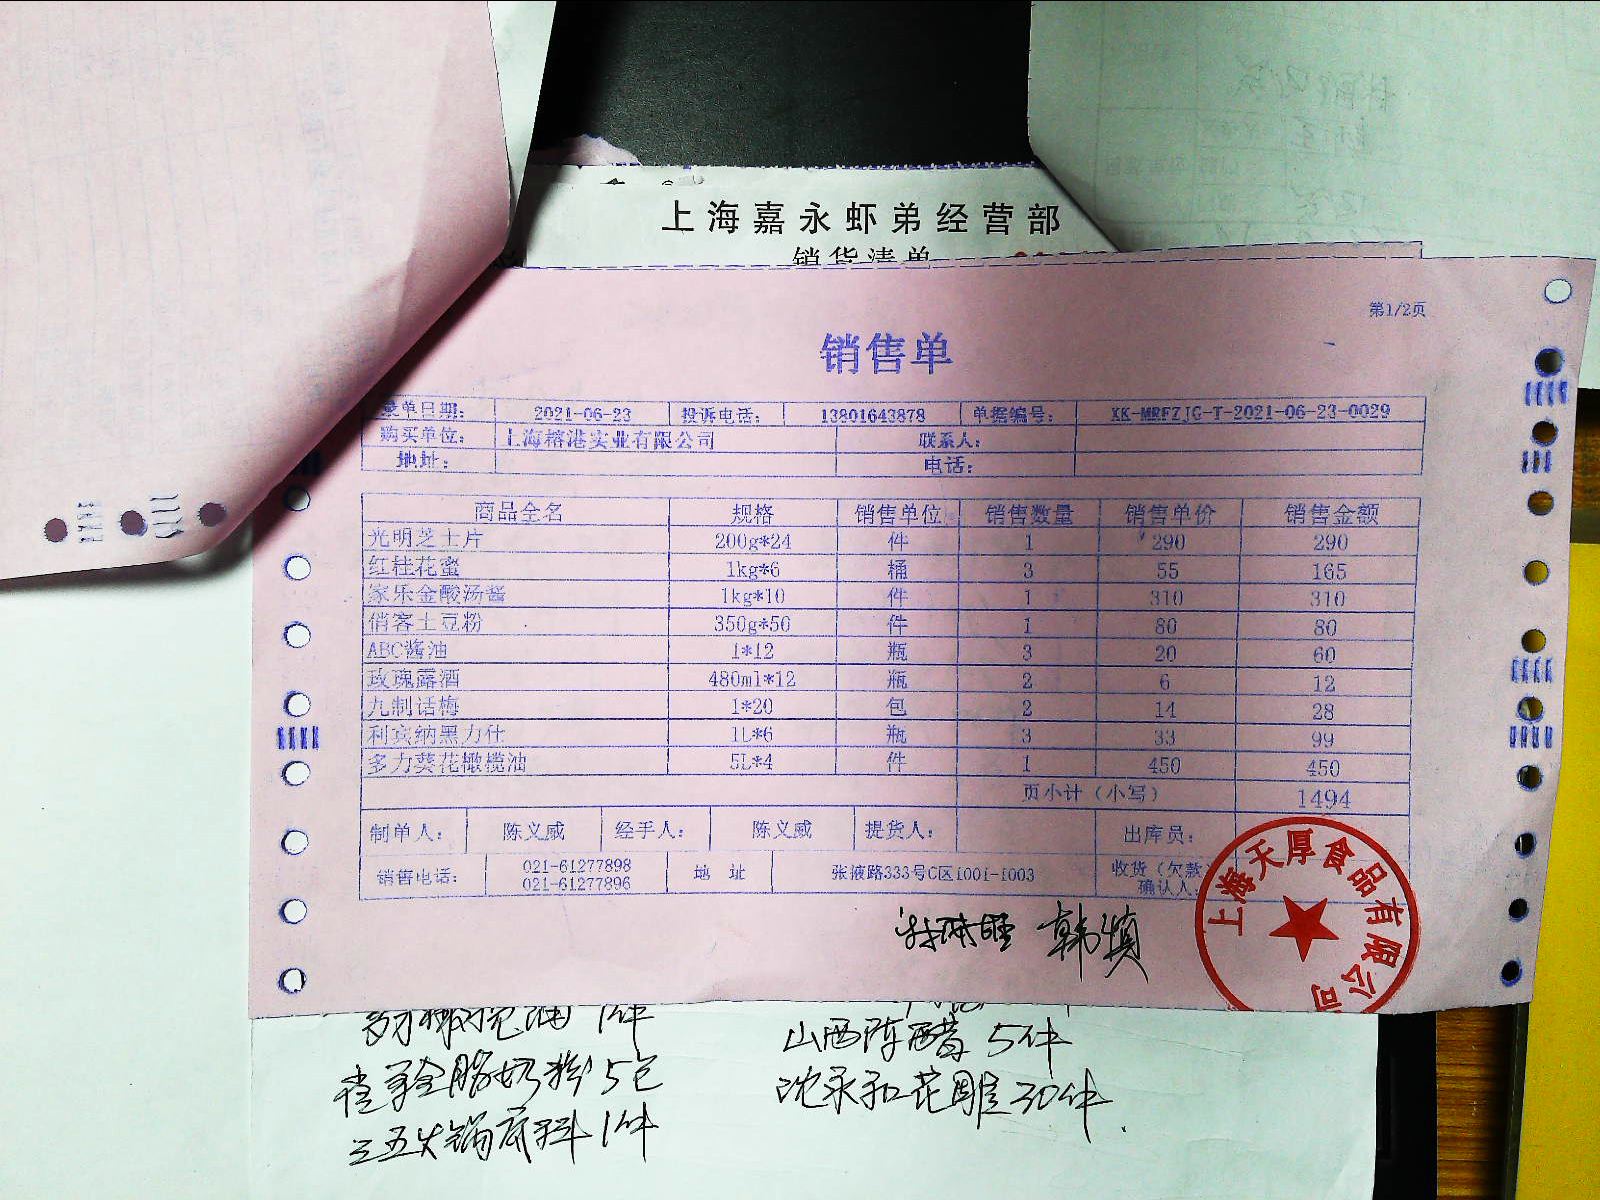 上海嘉永虾弟经营部
销货清单
第1/2页
销售单
录单日期: 2021-06-23 投诉电话: 13801643878 单据编号: XK-MRFZJG-T-2021-06-23-0029
购买单位: 上海榕港实业有限公司 联系人:
地址: 电话:
商品全名 规格 销售单位 销售数量 销售单价 销售金额
光明芝士片 200g*24 件 1 290 290
红桂花蜜 1kg*6 桶 3 55 165
家乐金酸汤酱 1kg*10 件 1 310 310
俏客土豆粉 350g*50 件 1 80 80
ABC酱油 1*12 瓶 3 20 60
玫瑰露酒 480ml*12 瓶 2 6 12
九制话梅 1*20 包 2 14 28
利宾纳黑力仕 1L*6 瓶 3 33 99
多力葵花橄榄油 5L*4 件 1 450 450
页小计（小写） 1494
制单人: 陈义威 经手人: 陈义威 提货人: 出库员:
销售电话: 021-61277898 021-61277896 地 址 张掖路333号C区1001-1003 收货（欠款 确认人:
上海天厚食品有限公司
韩慎
1件
山西陈醋 5件
全脂奶粉 5包
沈永和花雕 30件
三五火锅底料 1件